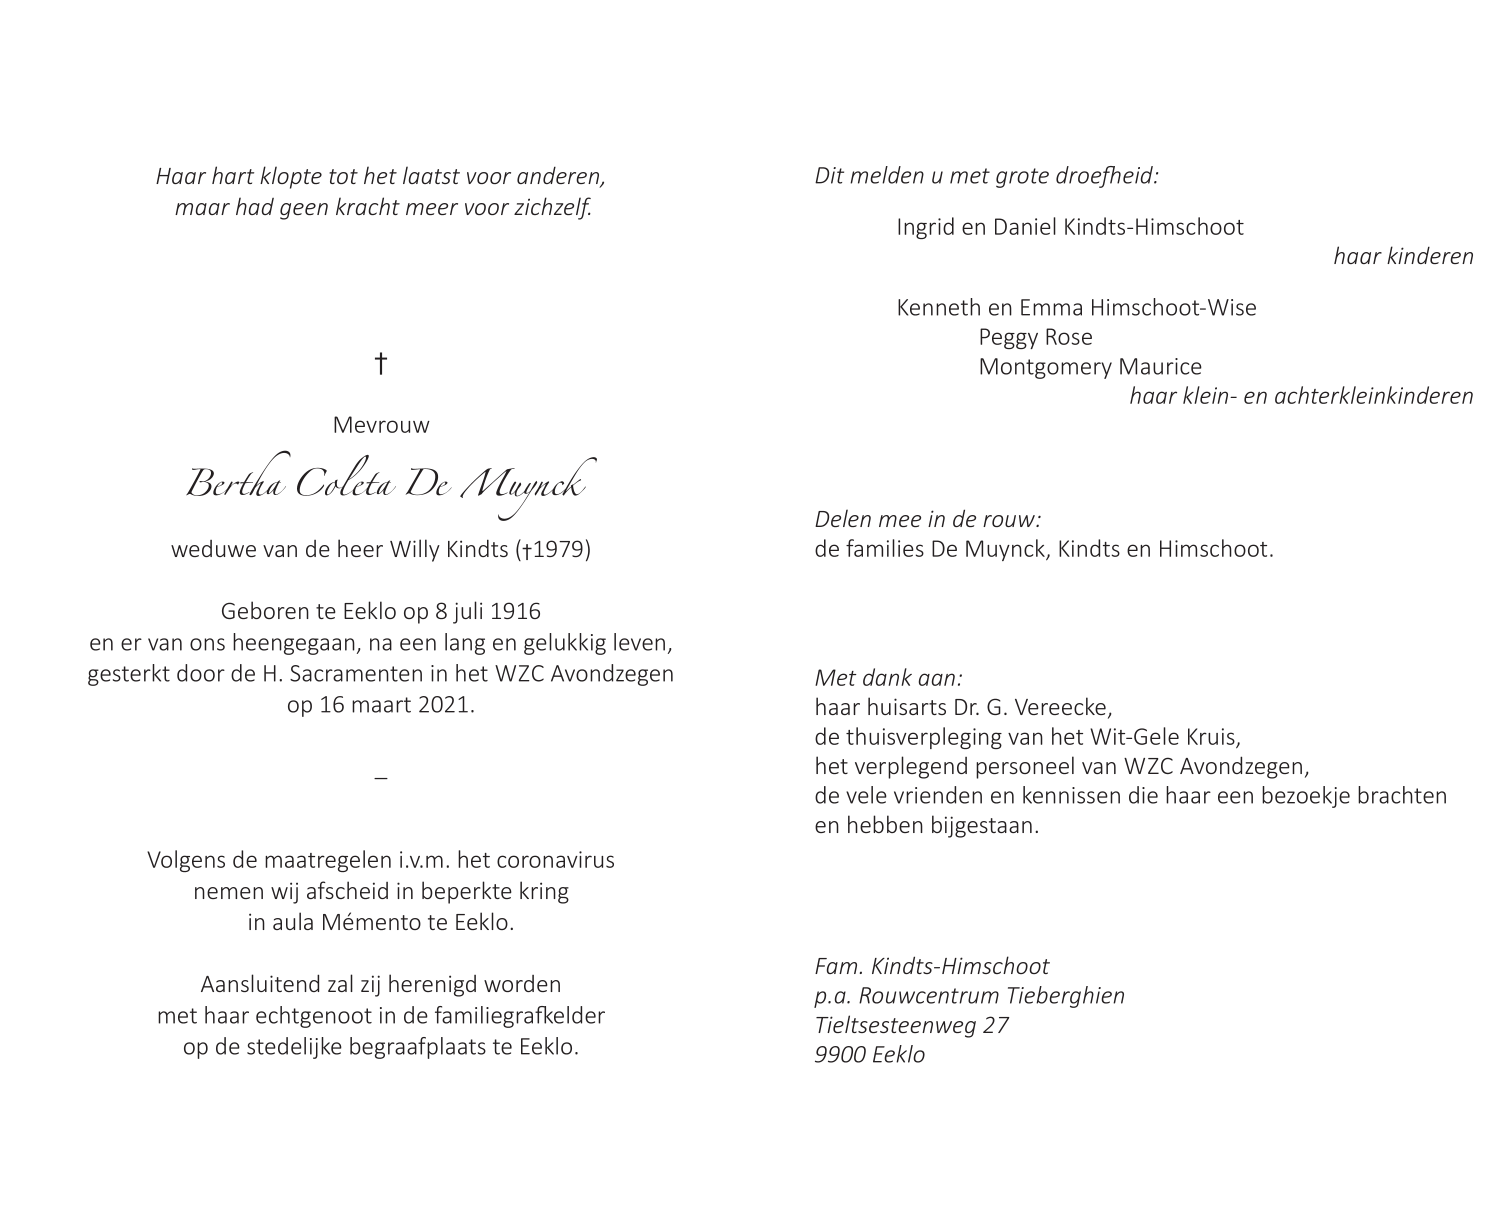 Haar hart klopte tot het laatst voor anderen,
maar had geen kracht meer voor zichzelf.
†
Mevrouw
Bertha Coleta De Muynck
weduwe van de heer Willy Kindts (†1979)
Geboren te Eeklo op 8 juli 1916
en er van ons heengegaan, na een lang en gelukkig leven,
gesterkt door de H. Sacramenten in het WZC Avondzegen
op 16 maart 2021.
–
Volgens de maatregelen i.v.m. het coronavirus
nemen wij afscheid in beperkte kring
in aula Mémento te Eeklo.
Aansluitend zal zij herenigd worden
met haar echtgenoot in de familiegrafkelder
op de stedelijke begraafplaats te Eeklo.
Dit melden u met grote droefheid:
Ingrid en Daniel Kindts-Himschoot
haar kinderen
Kenneth en Emma Himschoot-Wise
Peggy Rose
Montgomery Maurice
haar klein- en achterkleinkinderen
Delen mee in de rouw:
de families De Muynck, Kindts en Himschoot.
Met dank aan:
haar huisarts Dr. G. Vereecke,
de thuisverpleging van het Wit-Gele Kruis,
het verplegend personeel van WZC Avondzegen,
de vele vrienden en kennissen die haar een bezoekje brachten
en hebben bijgestaan.
Fam. Kindts-Himschoot
p.a. Rouwcentrum Tieberghien
Tieltsesteenweg 27
9900 Eeklo